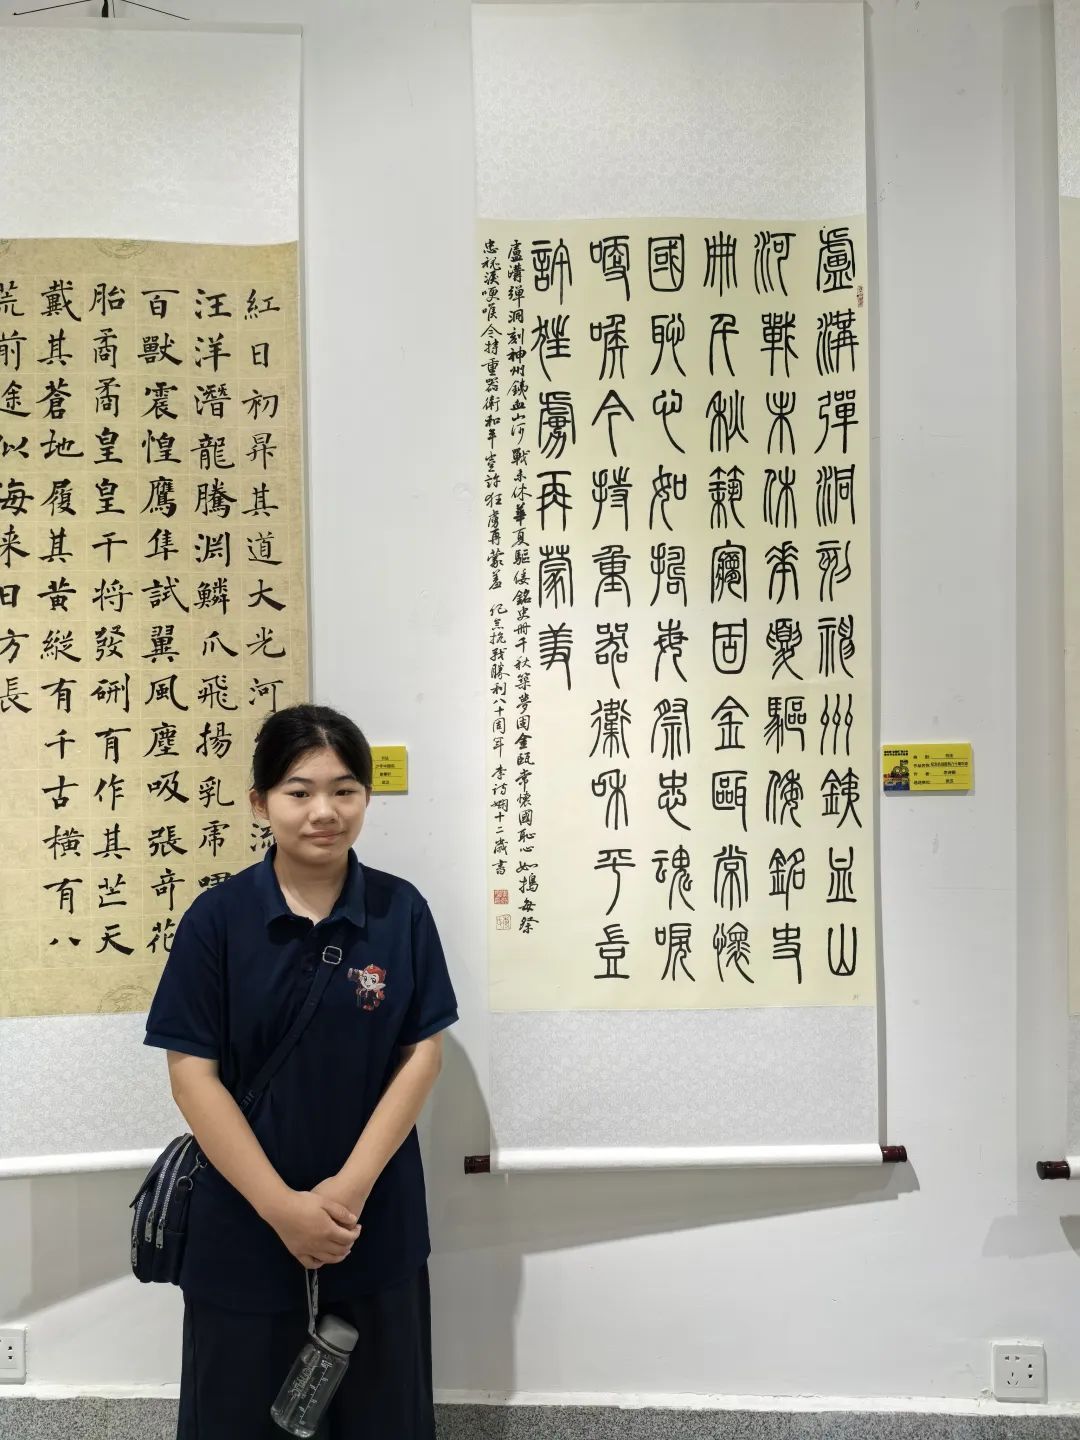 紅日初昇其道大光河
流
汪洋潛龍騰淵鱗爪飛揚乳虎嘯
百獸震惶鷹隼試翼風塵吸張奇花
胎矞矞皇皇干將發硎有作其芒天
戴其蒼地履其黃縱有千古橫有八
荒前途似海來日方長
盧溝彈洞刻神州鐵血山
河戰未休華夏驅倭銘史
冊千秋築夢固金甌常懷
國恥心如搗每祭忠魂淚
哽喉今持重器衛和平豈
許狂虜再蒙羞
盧溝彈洞刻神州鐵血山河戰未休華夏驅倭銘史冊千秋築夢固金甌常懷國恥心如搗每祭
忠魂淚哽喉今持重器衛和平豈許狂虜再蒙羞 紀念抗戰勝利八十周年 李詩嫻十二歲書